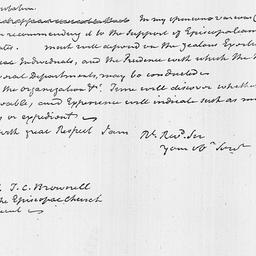 In my opinion various
recommending it to the Support of Episcopalians
must will depend on the Zealous Exertions
Individuals, and the Prudence with which the
Departments, may be conducted
the organization &c. Time will discover whether
and Experience will indicate such as may
or expedient
with great Respect I am Rt. Revd. Sir
Your Ob Servt
T. C. Brownell
the Episcopal Church